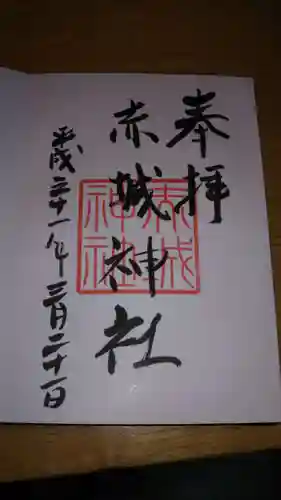 奉拝
赤城神社
赤城神社
平成三十一年三月二十一日